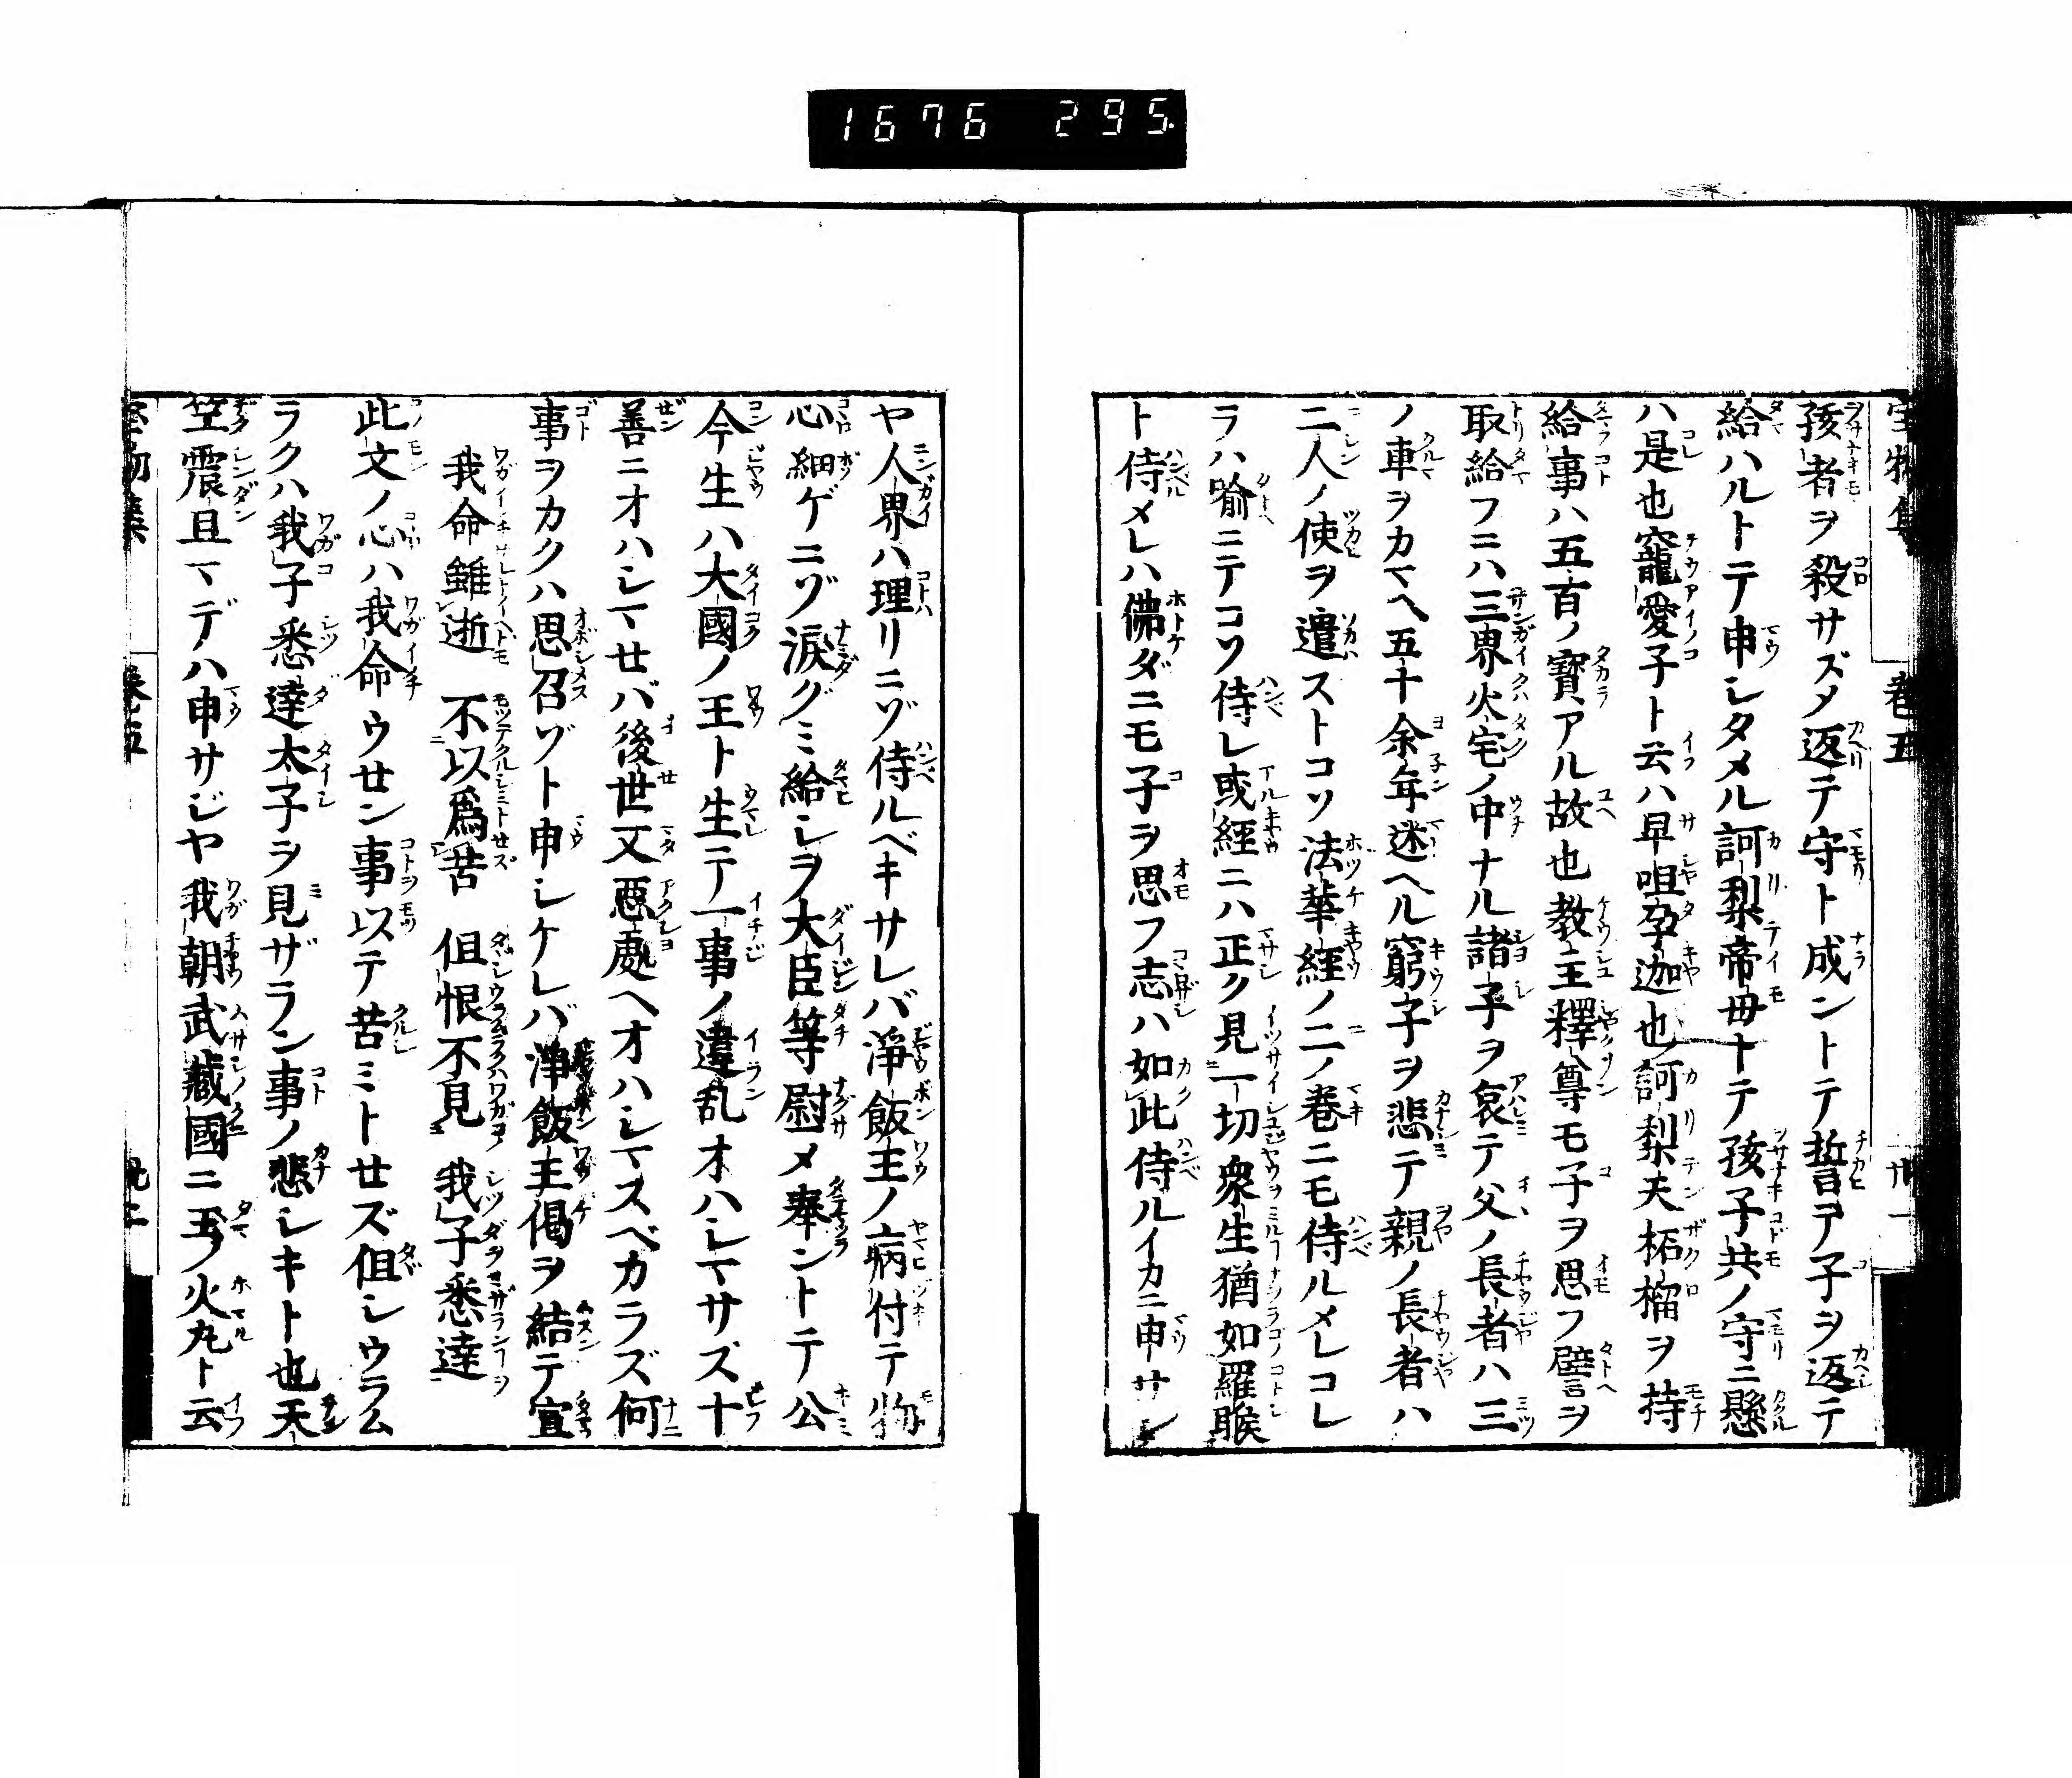 1676 295
孩者ヲ殺サズメ返テ守ト成ントテ誓テ子ヲ返テ
給ハルトテ申シタメル訶梨帝母トテ孩子共ノ守ニ懸
ハ是也寵愛子ト云ハ早咀孕迦也訶梨天柘榴ヲ持
給事ハ五百ノ寶アル故也教主釋尊モ子ヲ思フ譬ヲ
取給フニハ三界火宅ノ中ナル諸子ヲ哀テ父ノ長者ハ三
ノ車ヲカマヘ五十余年迷ヘル窮子ヲ悲テ親ノ長者ハ
二人ノ使ヲ遣ストコソ法華經ノ二ノ巻ニモ侍ルメレコレ
ラハ喩ニテコソ侍レ或經ニハ正ク見一切衆生猶如羅睺
ト侍メレハ佛ダニモ子ヲ思フ志ハ如此侍ルイカニ申サン
ヤ人界ハ理リニゾ侍ルベキサレバ淨飯王ノ病付テ物
心細ゲニゾ涙グミ給シヲ大臣等尉メ奉ントテ公
今生ハ大國ノ王ト生テ一事ノ違乱オハシマサズ十
善ニオハシマセバ後世又惡處ヘオハシマスベカラズ何
事ヲカクハ思召ゾト申シケレバ淨飯王偈ヲ結テ宣
我命雖逝 不以爲苦 但恨不見 我子悉達
此文ノ心ハ我命ウセン事以テ苦ミトセズ但シウラム
ラクハ我子悉達太子ヲ見ザラン事ノ悲シキト也天
竺震旦マデハ申サジヤ我朝武藏國ニ玉ノ火丸ト云
寳物集 巻五 九二